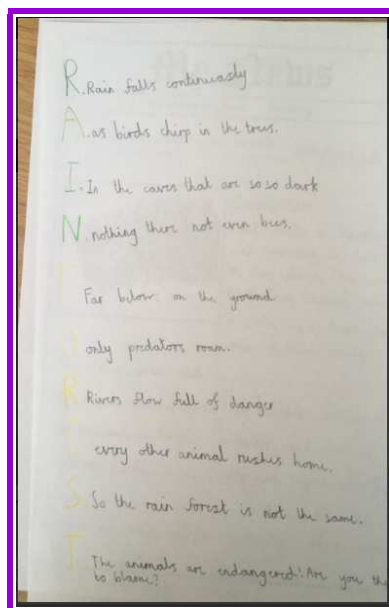 R. Rain falls continuously
A. as birds chirp in the trees.
I. In the caves that are so so dark
N. nothing there not even bees.
F Far below on the ground
O only predators roam.
R Rivers flow full of danger
E every other animal rushes home.
S. So the rain forest is not the same.
T The animals are endangered! Are you the
to blame?